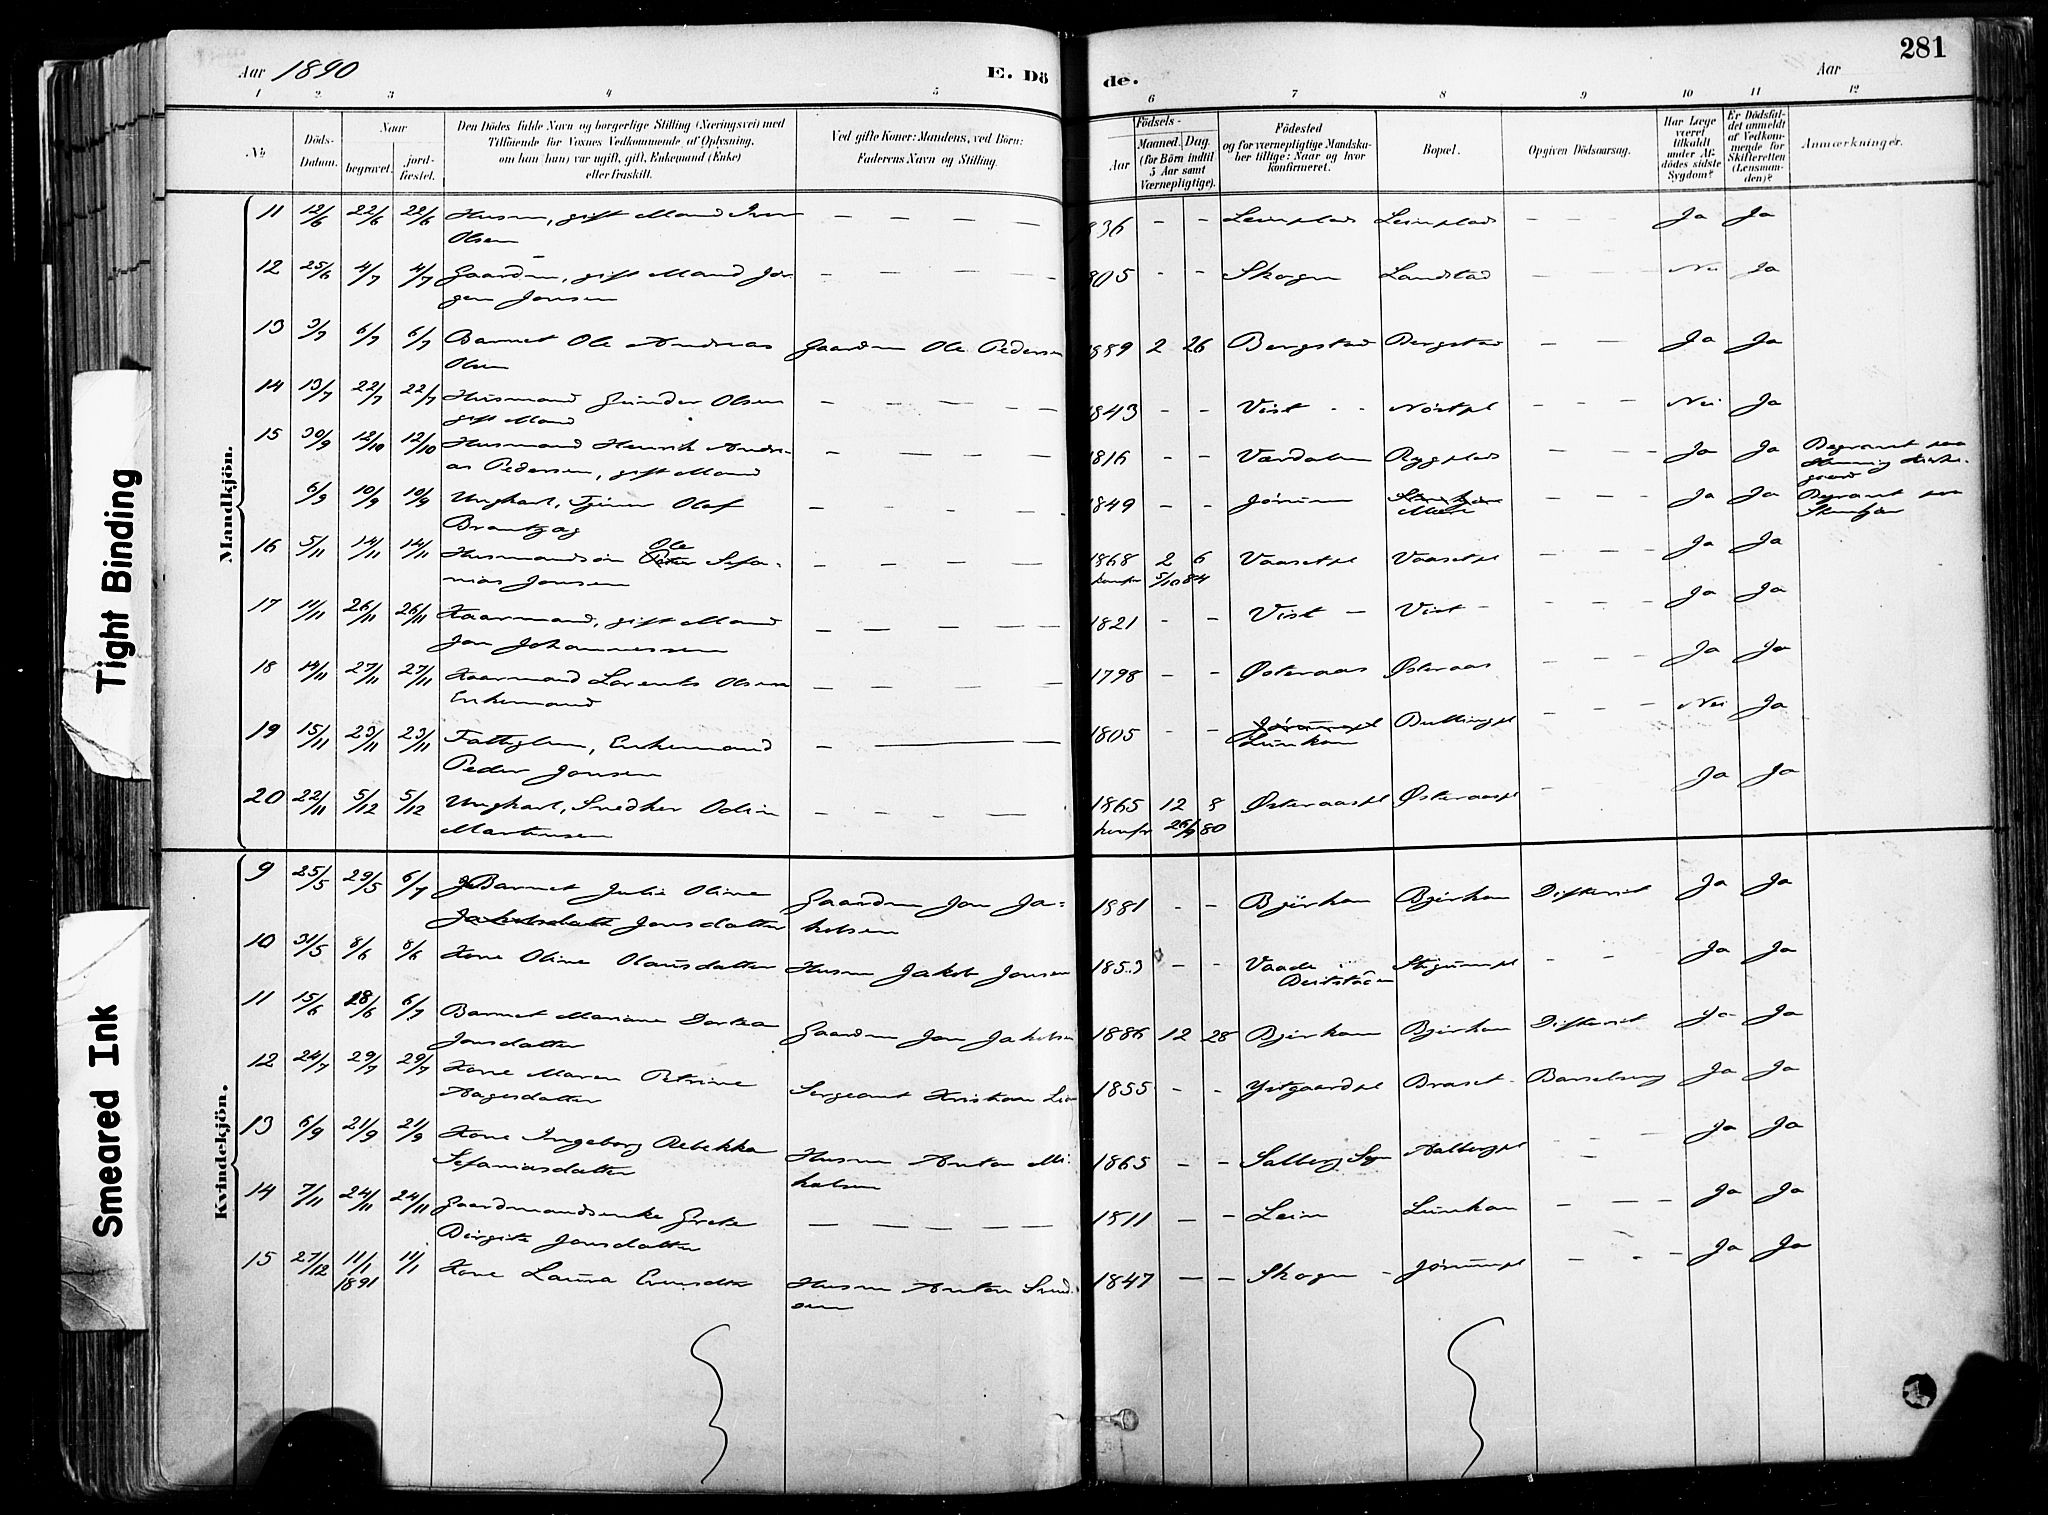 281
Aar 1890
E. Dö
de.
Aar
1 2 3 4 5 6 7 8 9 10 11 12
No.
Döds-Datum.
Naar
begravet.
jord-fæstet.
Den Dödes fulde Navn og borgerlige Stilling (Næringsvei) med
Tilföiende for Voxnes Vedkommende af Oplysning,
om han (hun) var ugift, gift, Enkemand (Enke)
eller fraskilt.
Ved gifte Koner: Mandens, ved Börn:
Faderens Navn og Stilling.
Födsels-
Aar
Maaned. Dag
(for Börn indtil
5 Aar samt
Værnepligtige).
Födested
og for værnepligtige Mandska-
ber tillige: Naar og hvor
konfirmeret.
Bopæl.
Opgiven Dödsaarsag.
Har Læge
været
tilkaldt
under Af-
dödes sidste
Sygdom?
Er Dödsfal-
det anmeldt
af Vedkom-
mende for
Skifteretten
(Lensman-
den)?
Anmærkninger.
Mandkjön.
11 12/6 22/6 22/6 Husm, gift Mand Iver — — — — 836 - - Leinplads Leinplads — — — Ja Ja
Olsen
12 25/6 4/7 4/7 Gaardm, gift Mand Jør — — — — 805 - - Skogn Landstad — — — Nei Ja
gen Jonsen
13 3/7 6/7 6/7 Barnet Ole Andreas Gaardm Ole Pedersen 1889 2 26 Bergstad Bergstad — — Ja Ja
Olsen
14 13/7 22/7 22/7 Husmand Gunder Olsen — — — — 1843 - - Vist - - Nöistpl — — — Nei Ja
gift Mand
15 30/9 12/10 12/10 Husmand Henrik Andre- — — — — 1816 - - Værdalen Rygplads — — — Ja Ja Begravet paa
as Pedersen, gift Mand
6/9 10/9 10/9 Ungkarl, Tjener Olaf — — — — 1849 - - Jörum Mære — — — Ja Ja Begravet paa
Brantzæg
16 5/11 14/11 14/11 Husmandssön Ole Sefa- — — — — 1868 2 6 Vaasetpl Vaasetpl — — — Ja Ja
nias Jonsen konfr 5/10 84
17 11/11 26/11 26/11 Kaarmand, gift Mand — — — — 1821 - - Vist — Vist — — — — Ja Ja
Jon Johannessen
18 14/11 27/11 27/11 Kaarmand Lorents Olsen — — — — 1798 - - Østeraas Østeraas — — — Ja Ja
Enkemand
19 15/11 23/11 23/11 Fattiglem, Enkemand — — — 1805 - - Jörumpl — — — Nei Ja
Peder Jonsen Lunkan
20 22/11 5/12 5/12 Ungkarl, Snedker Odin — — — — 1865 12 8 Østeraaspl Østeraaspl — — Ja Ja
Martinsen konfr 26/9 80
Kvindekjön.
9 25/5 29/5 6/7 Barnet Julie Oline Gaardm Jon Ja- 1881 - - Bjerkan Bjerkan Difterit Ja Ja
Jakobsdatter Jonsdatter kobsen
10 31/5 8/6 8/6 Kone Oline Olausdatter Husm Jakob Jonsen 1853 - - Vaade — — Ja Ja
Beitstaden
11 15/6 28/6 6/7 Barnet Mariane Dortea Gaardm Jon Jakobsen 1886 12 28 Bjerkan Bjerkan Difterit Ja Ja
Jonsdatter
12 24/7 29/7 29/7 Kone Maren Petrine Sergeant Kristian 1855 - - Ystgaardpl Braset - Barselseng Ja Ja
Aagesdatter
13 6/9 21/9 21/9 Kone Ingeborg Rebekka Husm Anton Mi- 1865 - - Salberg Sogn Aalbergpl — — Ja Ja
Sefaniasdatter kalsen
14 7/11 24/11 24/11 Gaardmandsenke Grete — — — — 1811 - - Lein Lunkan — — — Ja Ja
Birgitte Jonsdatter
15 27/12 11/1 11/1 Kone Laura Husm Anton 1847 — - Skogn - Jörumpl — - — Ja Ja
1891
Tight Binding
Smeared Ink